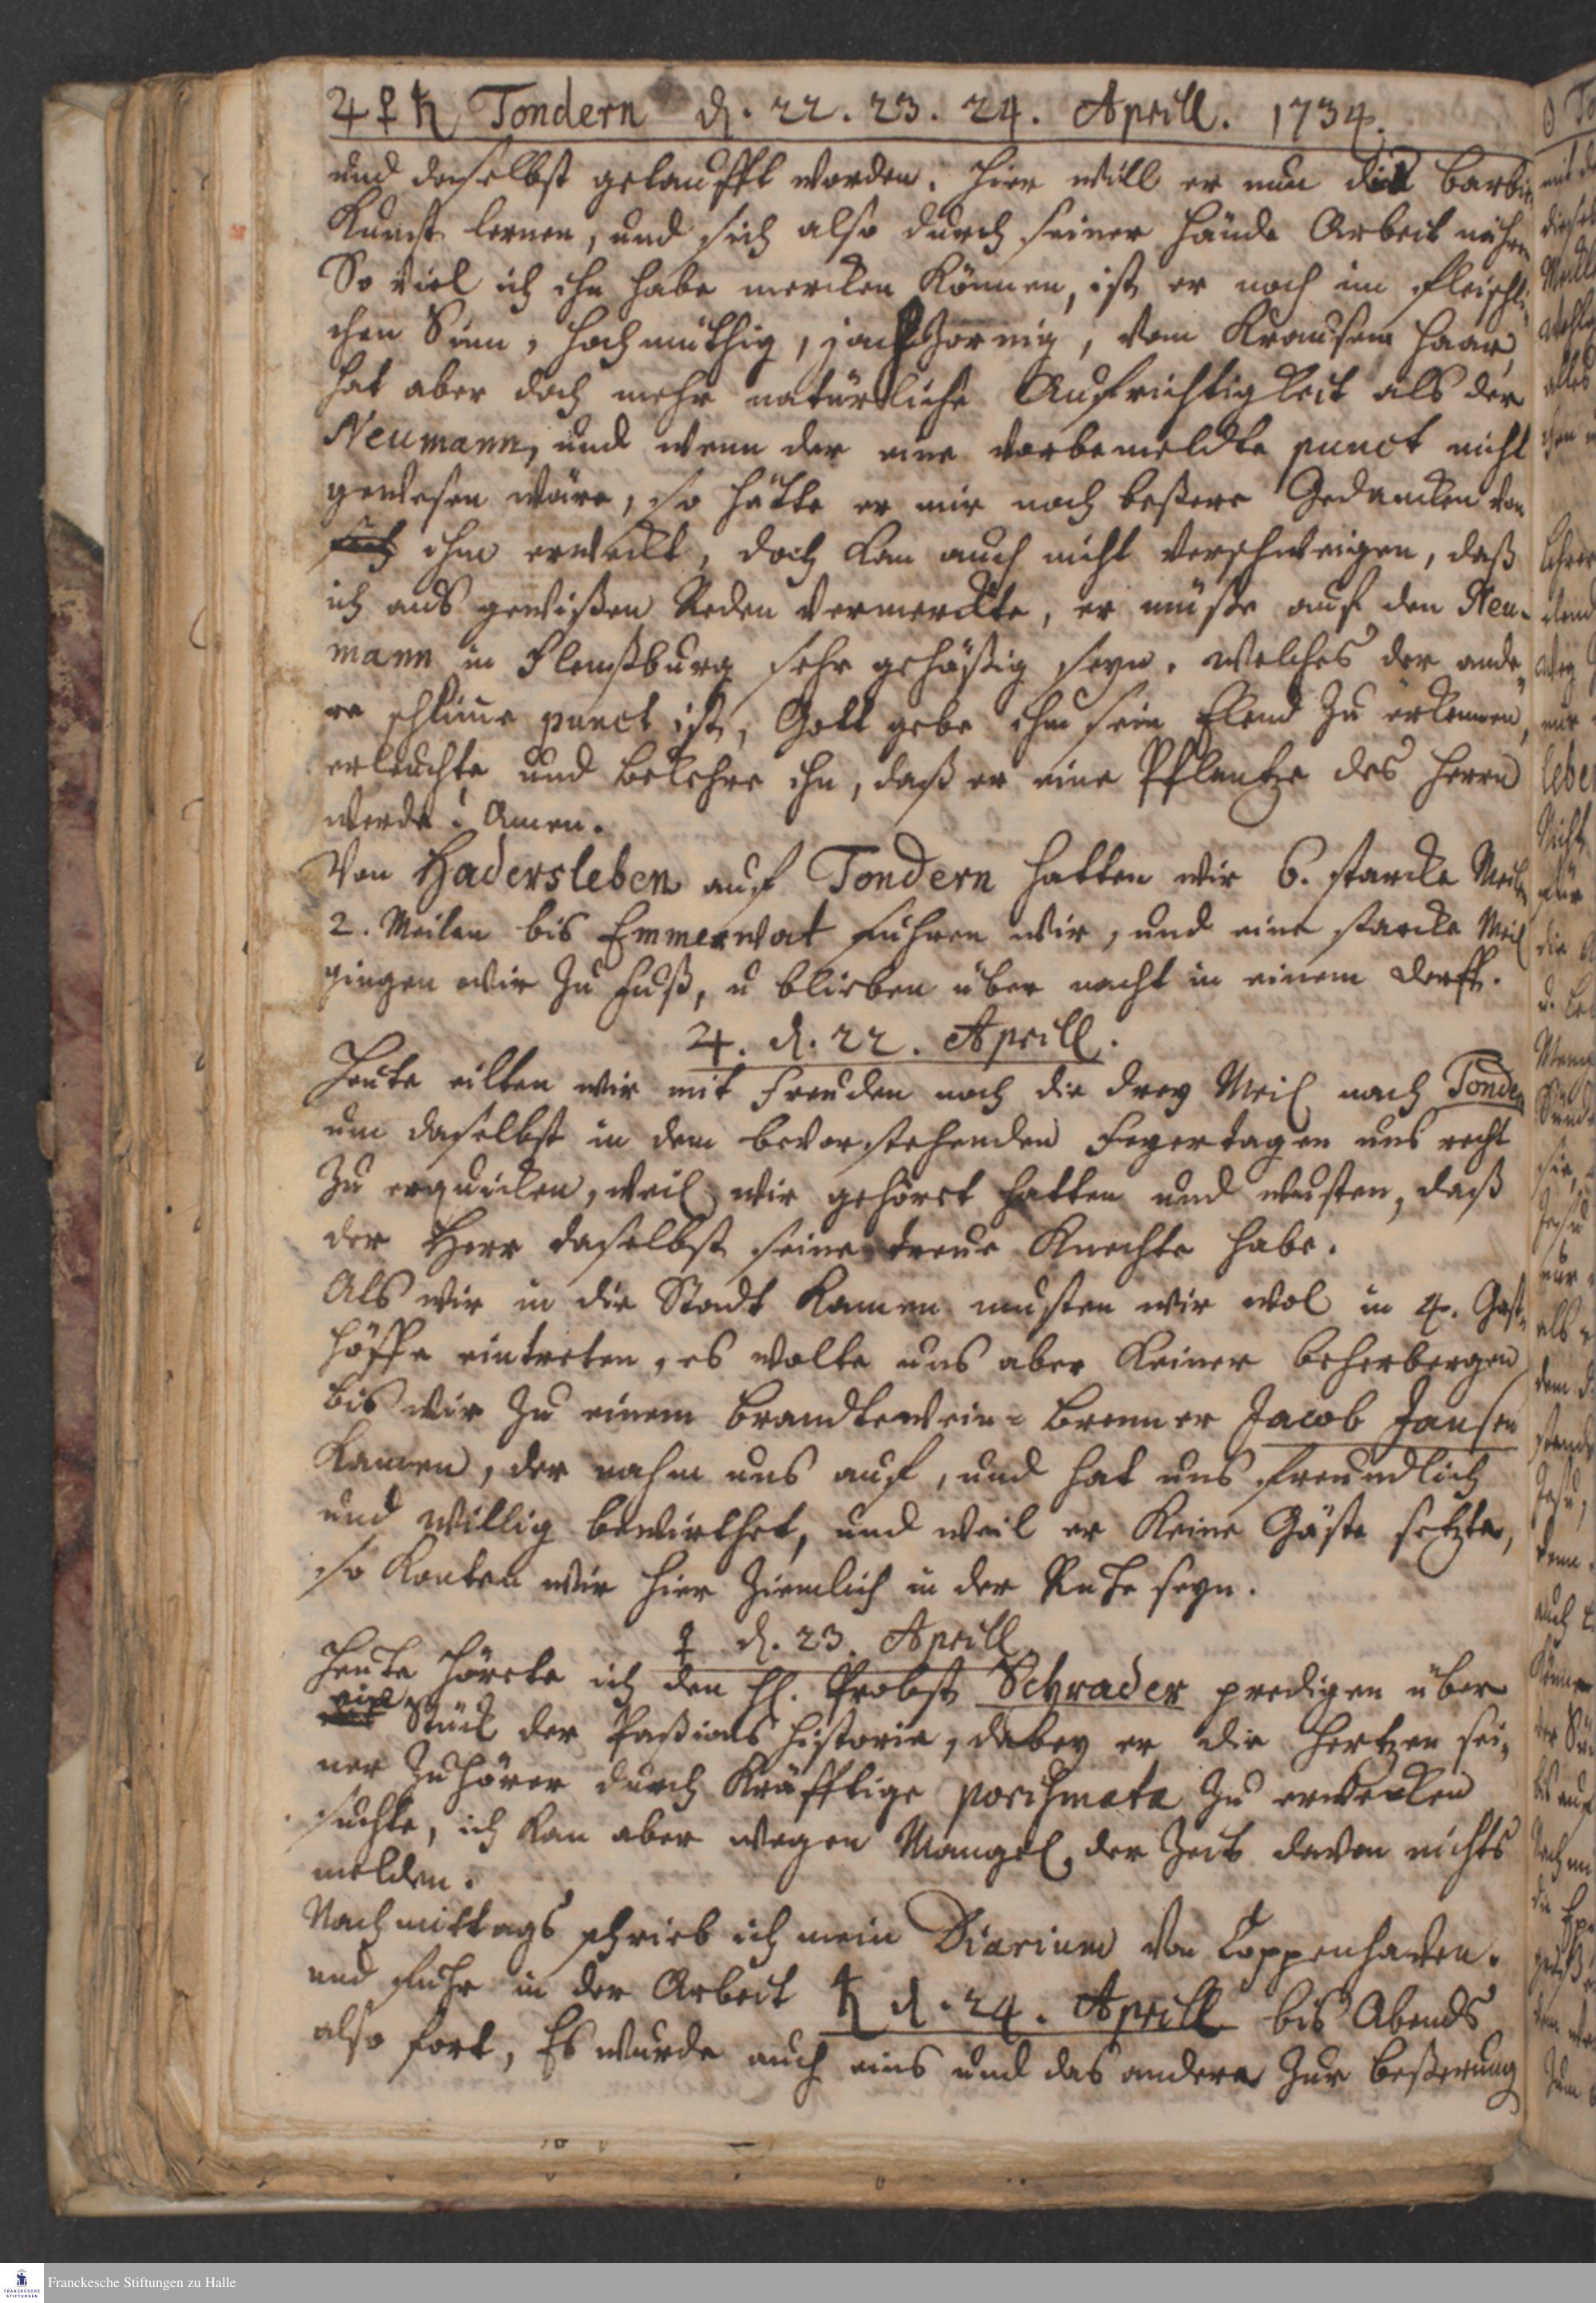 ♃ ♀ ♄ Tondern d. 22. 23. 24. Aprill. 1734.
und daselbst getaufft worden. Hier will er nun die Barbir
Kunst lernen, und sich also durch seiner Hände Arbeit nähren
So viel ich ihn habe mercken können, ist er noch im fleischli¬
chen Sinn, hochmüthig, jachzornig, vom Krausem Haar,
hat aber doch mehr natürliche Aufrichtigkeit als der
Neumann, und wenn der eine vorbemeldte punct nicht
gewesen wäre, so hätte er mir noch beßere Gedancken von
ihm erweckt, doch kan auch nicht verschweigen, daß
ich aus gewißen Reden vermerckte, er müße auf den Neu-
mann in Flensburg sehr gehäßig seyn. welches der ande¬
re schlimme punct ist, Gott gebe ihm sein Elend zu erkennen,
erleuchte und bekehre ihn, daß er eine Pflantze des Herrn
werde! Amen.
Von Hadersleben auf Tondern hatten wir 6. starcke Meilen
2. Meilen bis Emmerwat fuhren wir, und eine starcke Meil
gingen wir zu Fuß, u blieben über nacht in einem Dorff.
♃. d. 22. Aprill.
Heute eilten wir mit Freuden noch die drey Meil nach Tondern
um daselbst in dem bevorstehenden Feyertagen uns recht
zu erquicken, weil wir gehöret hatten und wusten, daß
der Herr daselbst seine treue Knechte habe.
Als wir in die Stadt kamen musten wir wol in 4. Gast¬
höffe eintreten, es wolte uns aber keiner beherbergen
bis wir zu einem Brandtewein-Brenner Jacob Jansen
kamen, der nahm uns auf, und hat uns freundlich
und willig bewirthet, und weil er keine Gäste setzte,
so konten wir hier ziemlich in der Ruhe seyn.
♀ d. 23. Aprill
Heute hörete ich den H. Probst Schrader predigen über
ein Stück der Paßions Historie, dabey er die Hertzen sei¬
ner Zuhörer durch kräfftige porismata zu erwecken
suchte, ich kan aber wegen Mangel der Zeit davon nichts
melden.
Nachmittags schrieb ich mein Diarium von Coppenhaven.
und fuhr in der Arbeit ♄ d. 24. Aprill bis Abends
also fort, Es wurde auch eins und das andere zur Beßerung
Franckesche Stiftungen zu Halle